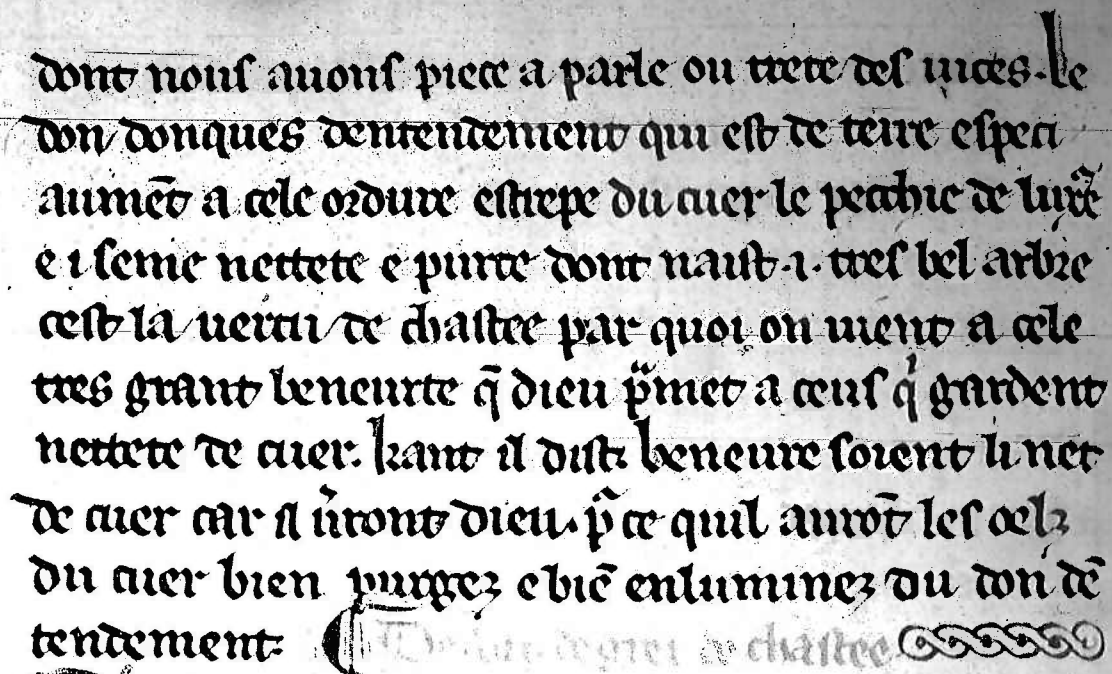 dont nouſ auonſ piece a parle ou trete deſ uices. le
don donques dentendement qui eſt de teire eſpeci
aumēt a cele ordure eſtrepe du cuer le pecchie de luxͣe
e i ſeme nettete e purte dont naiſt .i. treſ bel arbꝛe
ceſt la uertu de chaſtee par quoi on uient a cele
tres grant beneurte q̄ dieu pͦmet a ceuſ qͥ gardent
nettete de cuer. kant il diſt beneure ſoient li net
de cuer car il uͬront dieu. pͬ ce quil aurōt leſ oelz
du cuer bien purgez e biē enluminez du don dē
tendement.
de chaſtee